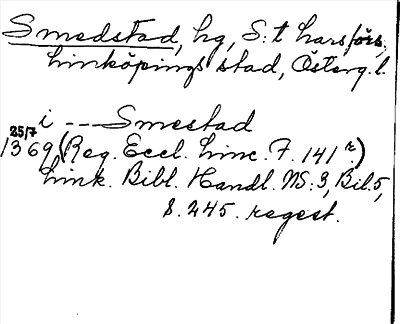 Smedstad, hg, S:t Lars förs.,
Linköpings stad, Österg.l.
i --- Smestad
25/7
1369 (Reg. Eccl. Linc. F. 141 r.)
Link. Bibl. Handl. NS: 3, Bil. 5,
s. 245. regest.